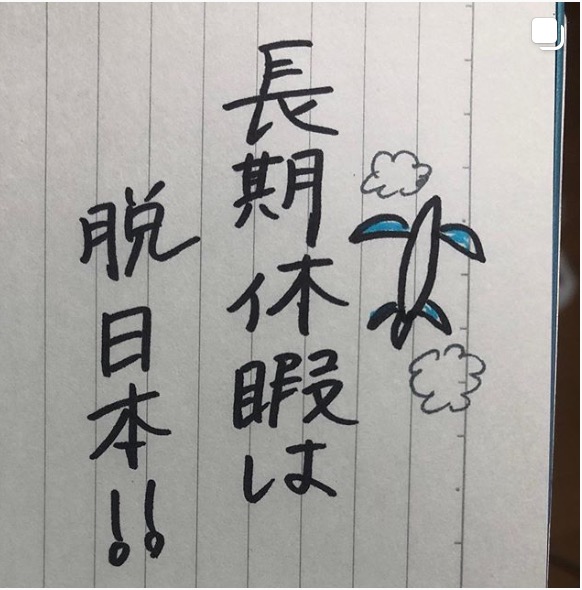 長期休暇は
脱日本!!